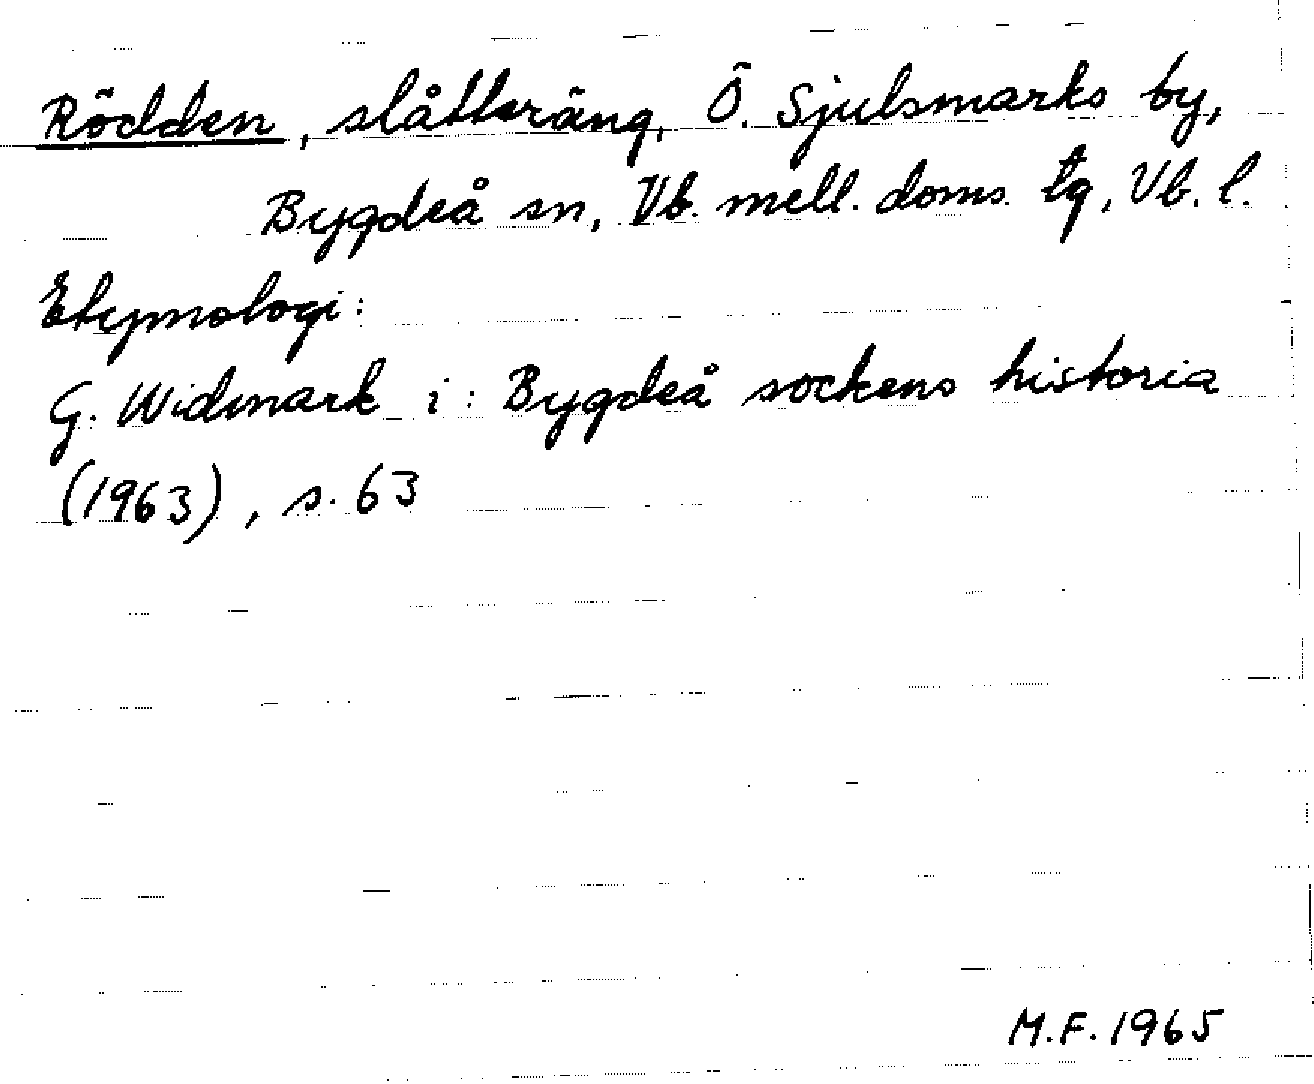 Rödden, slåtteräng, Ö. Sjulsmarks by,
Bygdeå sn, Vb. mell. doms. tg, Vb. l.
Etymologi:
G. Widmark i: Bygdeå sockens historia
(1963), s. 63
M.F. 1965